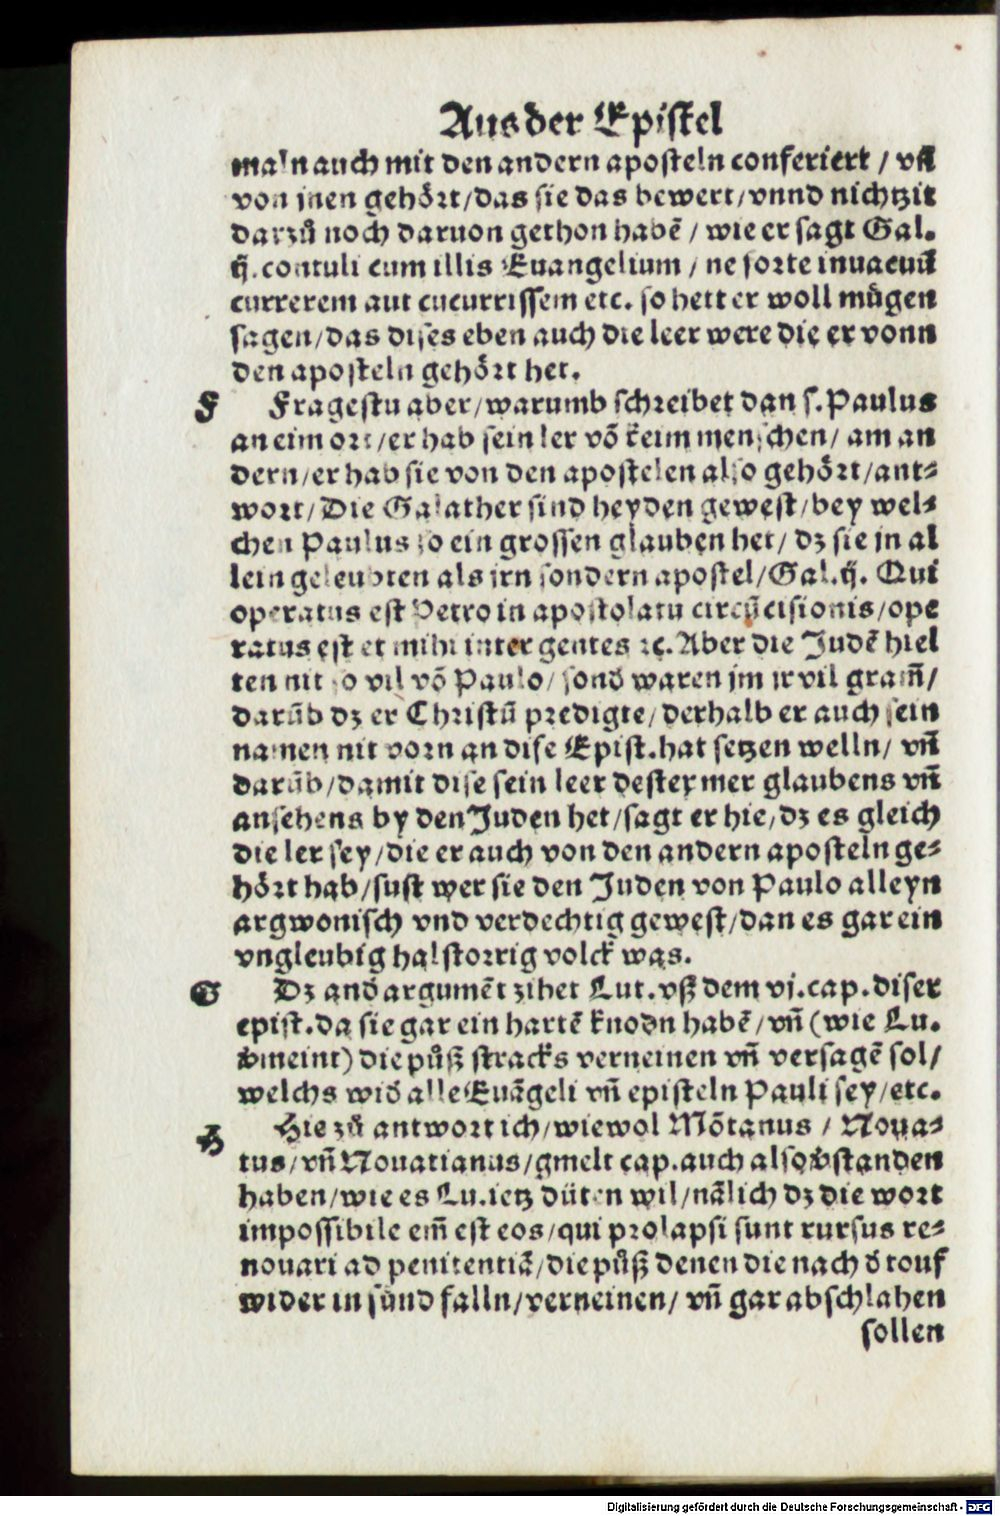 Aus der Epistel
maln auch mit den andern aposteln conferiert / vñ
von jnen gehört/das sie das bewert/vnnd nichtzit
darzů noch daruon gethon habē / wie er sagt Gal.
ij. contuli cum illis Euangelium / ne forte inuacuū
currerem aut cucurrissem etc. so hett er woll mügen
sagen/das dises eben auch die leer were die er vonn
den aposteln gehört het.
F Fragestu aber/warumb schreibet dan s. Paulus
an eim ort/er hab sein ler vō keim menschen/ am an
dern/er hab sie von den apostelen also gehört/ant⸗
wort/Die Galather sind heyden gewest/bey wel⸗
chen Paulus so ein grossen glauben het/ dz sie jn al
lein geleubten als jrn sondern apostel/Gal.ij. Qui
operatus est Petro in apostolatu circūcisionis/ope
ratus est et mihi inter gentes ꝛc. Aber die Judē hiel
ten nit so vil vō Paulo/ sond̛ waren jm jr vil gram̄/
darūb dz er Christū predigte/derhalb er auch sein
namen nit vorn an dise Epist.hat setzen welln/ vñ
darūb/damit dise sein leer dester mer glaubens vñ
ansehens by den Juden het/sagt er hie/dz es gleich
die ler sey/die er auch von den andern aposteln ge⸗
hört hab/sust wer sie den Juden von Paulo alleyn
argwonisch vnd verdechtig gewest/dan es gar ein
vngleubig halstorrig volck was.
G Dz and̛ argumēt zihet Lut. vß dem vj.cap.diser
epist.da sie gar ein hartē knodn habē/vñ (wie Lu.
v̛meint) die půß stracks verneinen vñ versagē sol/
welchs wid̛ alle Euāgeli vñ episteln Pauli sey/etc.
H Hie zů antwort ich/wiewol Mōtanus / Noua⸗
tus/vñ Nouatianus/gmelt cap.auch also v̛standen
haben/wie es Lu.ietz düten wil/nālich dz die wort
impossibile em̄ est eos/qui prolapsi sunt rursus re⸗
nouari ad penitentiā/die půß denen die nach d̛ touf
wider in sünd falln/verneinen/ vñ gar abschlahen
sollen
Digitalisierung gefördert durch die Deutsche Forschungsgemeinschaft - DFG